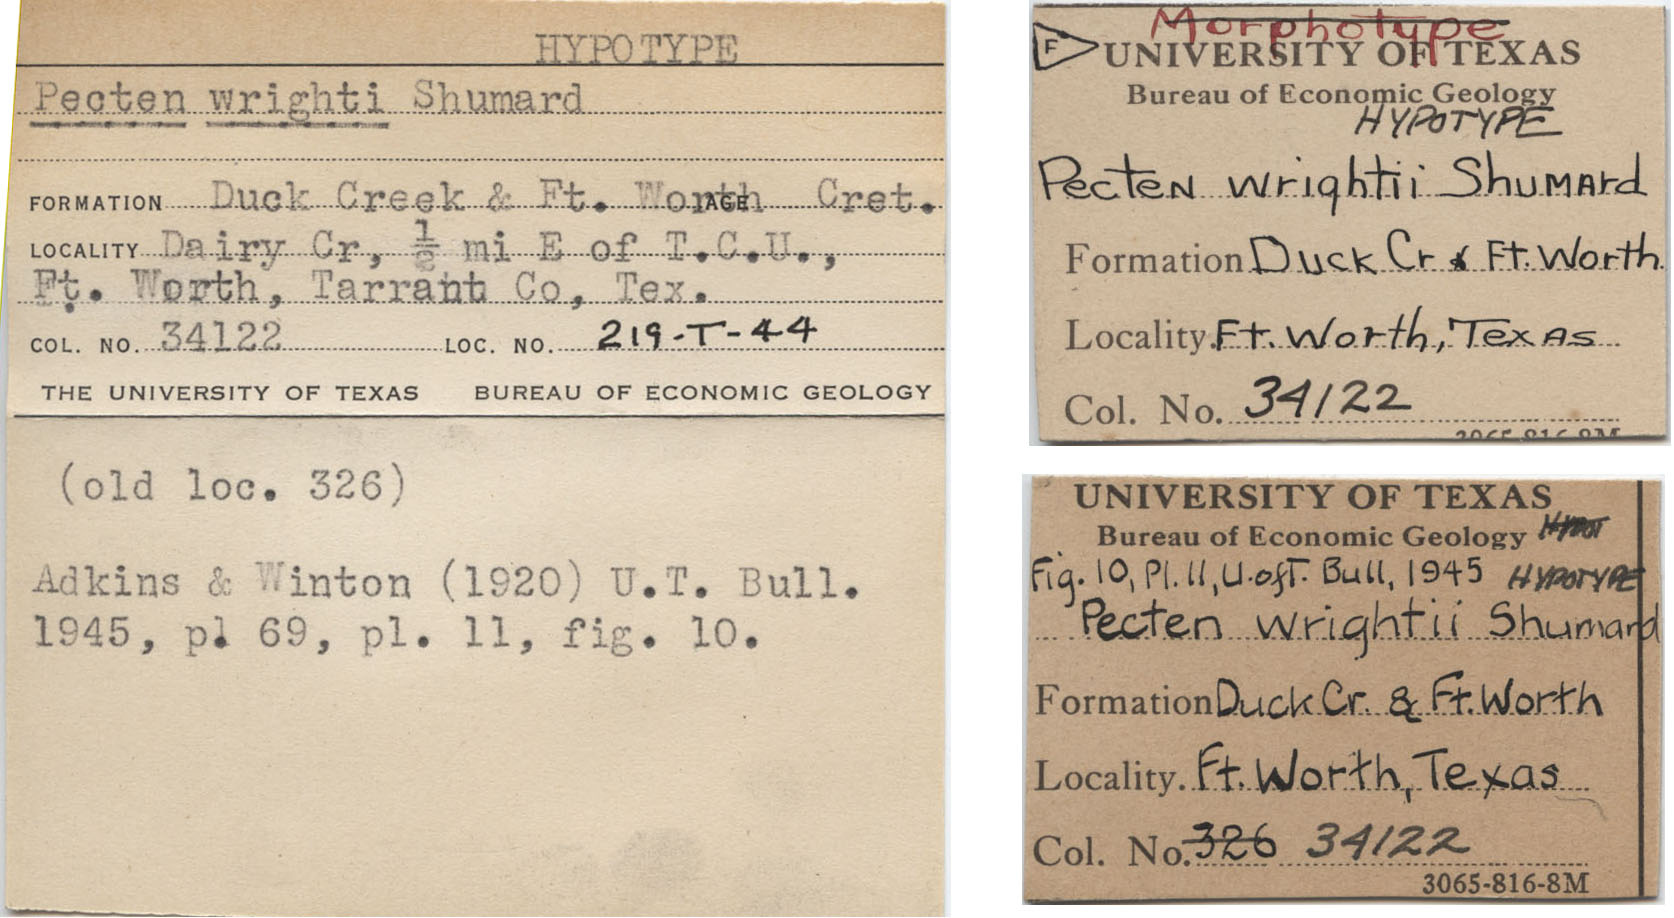 HYPOTYPE
Pecten wrighti Shumard
FORMATION Duck Creek & Ft. Worth AGE Cret.
LOCALITY Dairy Cr, ½ mi E of T.C.U.,
Ft. Worth, Tarrant Co, Tex.
COL. NO. 34122 LOC. NO. 219-T-44
THE UNIVERSITY OF TEXAS BUREAU OF ECONOMIC GEOLOGY
(old loc. 326)
Adkins & Winton (1920) U.T. Bull.
1945, pl 69, pl. 11, fig. 10.
Morphotype
F UNIVERSITY OF TEXAS
Bureau of Economic Geology
HYPOTYPE
Pecten wrightii Shumard
Formation Duck Cr & Ft. Worth
Locality. Ft. Worth, Texas
Col. No. 34122
3065-816-8M
UNIVERSITY OF TEXAS
Bureau of Economic Geology HYPOT
Fig. 10, Pl. 11, U. of T. Bull, 1945 HYPOTYPE
Pecten wrightii Shumard
Formation Duck Cr. & Ft. Worth
Locality. Ft. Worth, Texas
Col. No. 326 34122
3065-816-8M